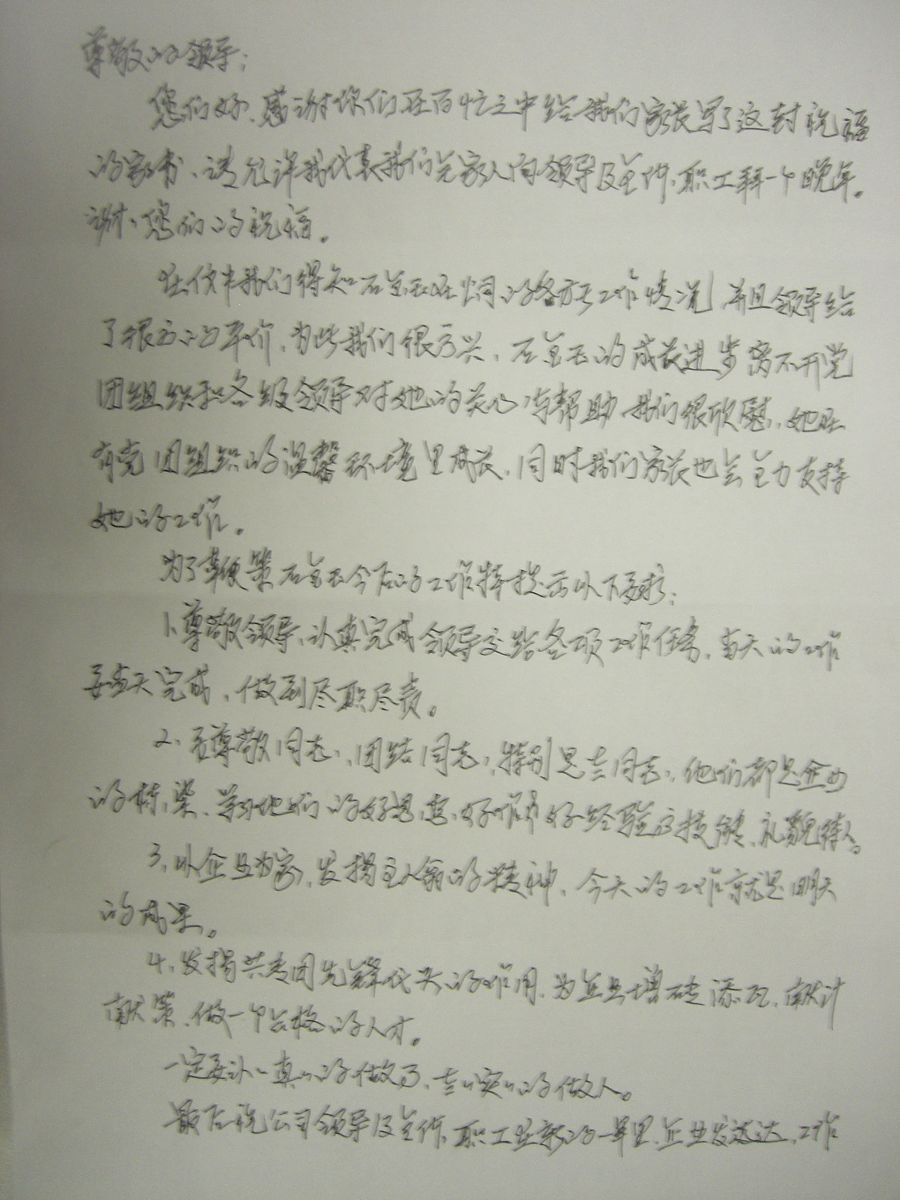 尊敬的领导：
您们好、感谢你们在百忙之中给我们家长写了这封祝福
的家书、请允许我代表我们全家人向领导及全体职工拜一个晚年。
谢谢您们的祝福。
在信中我们得知石金玉在公司的各方面工作情况，并且领导给
了很高的评价，为此我们很高兴，石金玉的成长进步离不开党
团组织和各级领导对她的关心与帮助 我们很欣慰，她在
有党团组织的温馨环境里成长，同时我们家长也会全力支持
她的工作。
为了鞭策石金玉今后的工作特提出以下要求：
1、尊敬领导、认真完成领导交给各项工作任务，当天的工作
要当天完成，做到尽职尽责。
2、要尊敬同志、团结同志，特别是老同志，他们都是企业
的栋梁、学习他们的好思想、好作风好经验及技能、礼貌待人。
3、以企业为家，发揭主人翁的精神、今天的工作就是明天
的成果。
4、发揭共青团先锋代头的作用，为企业增砖添瓦，献计
献策、做一个合格的人才。
一定要认认真真的做事、老老实实的做人。
最后祝公司领导及全体职工在新的一年里、企业发达，工作